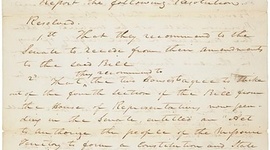 Report the following Resolution
Resolved.
1st That they recommend to the
Senate to recede from their amendments
to the said Bill
they recommend to
2 That the two Houses agree to strike
out of the fourth section of the Bill from
the House of Representatives now pen-
ding in the Senate, entitled an Act
to authorize the people of the Missouri
Territory to form a Constitution and State